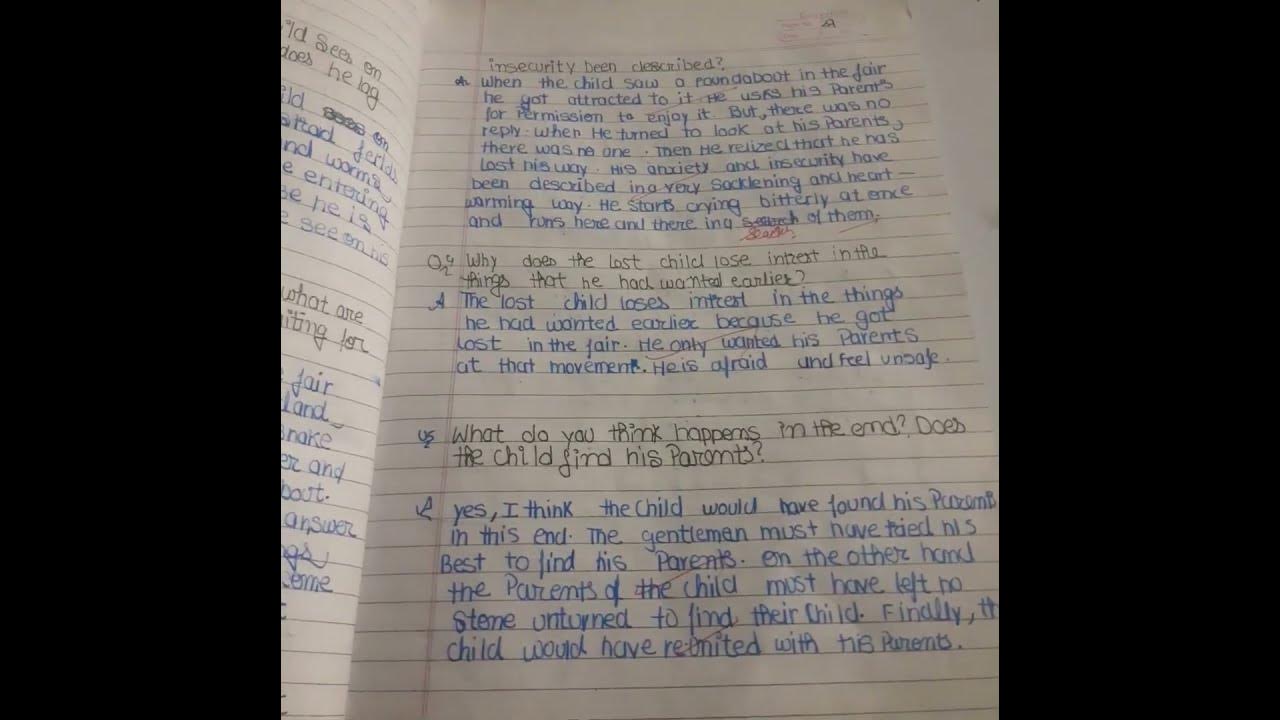 ild sees on
does he lag
ild on
and worms
e entering
se he is
e see on his
what are
iting for
fair
land
snake
er and
bout.
answer
ngs
come
insecurity been described?
A When the child saw a roundaboot in the fair
he got attracted to it. He usks his Parents
for Permission to enjoy it. But, there was no
reply. when He turned to look at his Parents,
there was no one. Then He relized that he has
Lost his way. His anxiety and insecurity have
been described in a very sacklening and heart –
warming way. He starts crying bitterly at once
and runs here and there in a search of them.
Search
Q4 Why does the lost child lose intrest in the
things that he had wanted earlier?
A The lost child loses intrest in the things
he had wanted earlier becguse he got
Lost in the fair. He only wanted his Parents
at that movement. He is afraid and feel unsafe.
Q5 What do you think happens in the end? Does
the child find his Parents?
A yes, I think the child would have found his Parents
in this end. The gentleman must have tried his
Best to find his Parents. on the other hand
the Parents of the child must have left no
stone unturned to find their child. Finally, th
child would have reunited with his Parents.